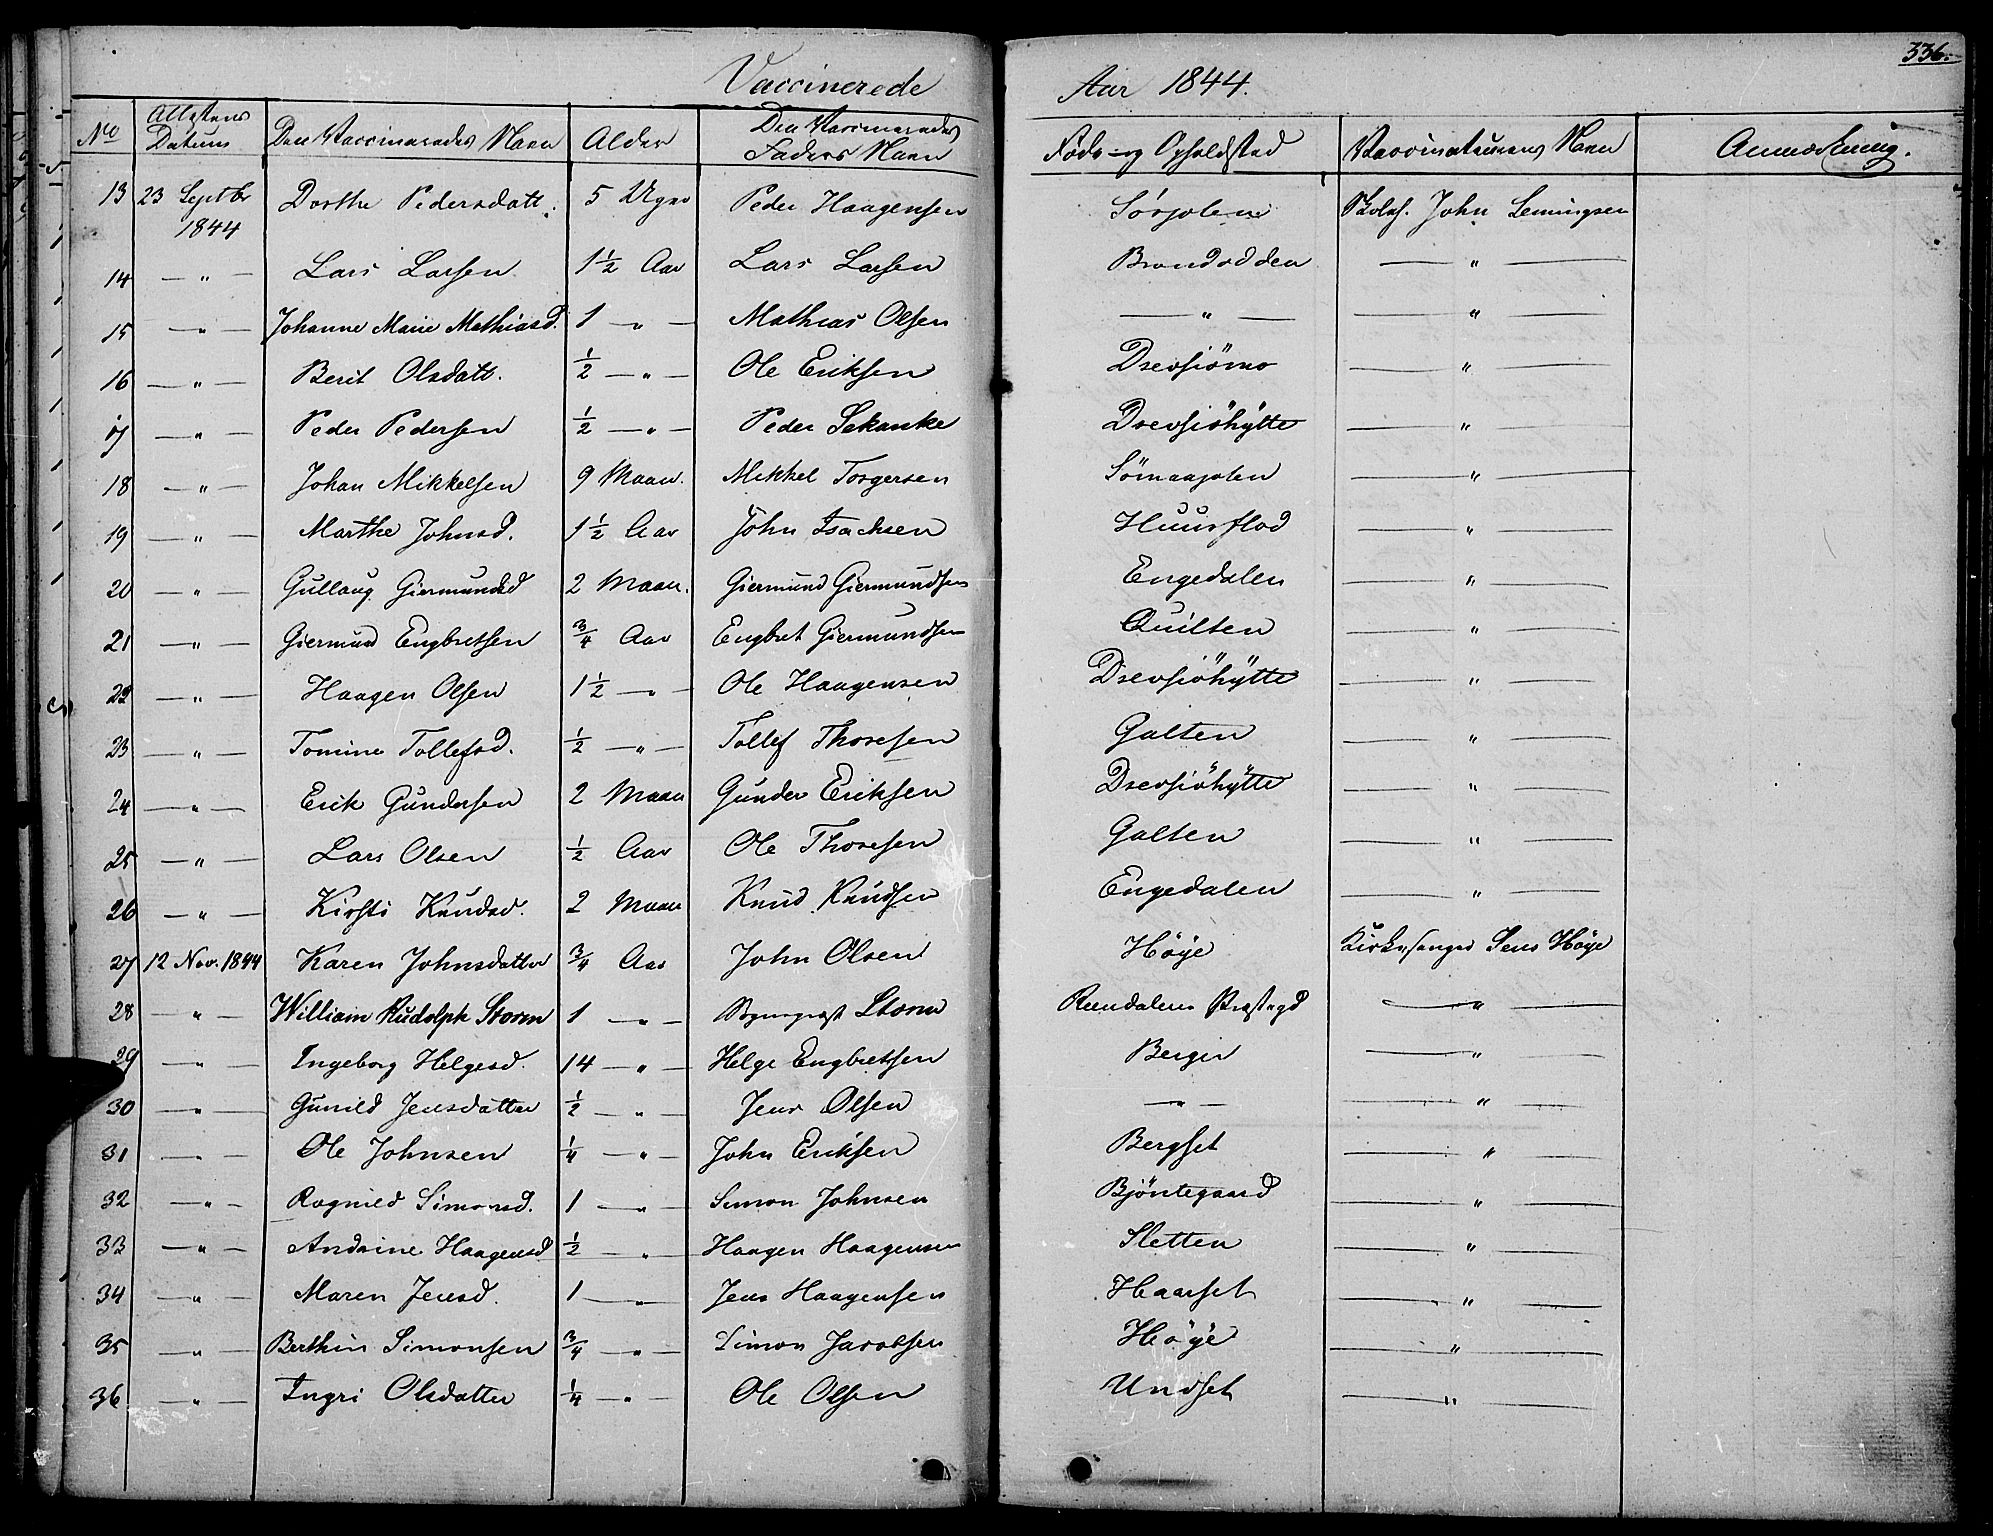 336.
Vaccinerede Aar 1844.
No Attestens Datum Den Vaccineredes Navn Alder Den Vaccineredes Faders Navn Føde- og Opholdsted Vaccinateurens Navn Anmærkning.
13 23 Septbr 1844 Dorthe Pedersdatt. 5 Uger Peder Haagensen Sørjolen John Semingsen
14 — " — Lars Larsen. 1 1/2 Aar Lars Larsen Brændodden — " —
15 — " — Johanne Marie Mathiasd. 1 — " — Mathias Olsen — " — — " —
16 — " — Berit Olsdatt. 1/2 — " — Ole Eriksen Drevsiömo — " —
17 — " — Peder Pedersen 1/2 — " — Peder Sekanke Drevsiöhytte — " —
18 — " — Johan Mikkelsen 9 Maan. Mikkel Torgersen Sömaajolen — " —
19 — " — Marthe Johnsd. 1 1/2 Aar John Isachsen Huusflod — " —
20 — " — Gullaug Giermundsd 2 Maan. Giermund Giermundsen Engedalen — " —
21 — " — Giermund Engbretsen 3/4 Aar Engbret Giermundsen Quilten — " —
22 — " — Haagen Olsen 1 1/2 — " — Ole Haagensen Drevsiöhytte — " —
23 — " — Tomine Tollefsd. 1/2 — " — Tollef Thoresen Galten — " —
24 — " — Erik Gundersen 2 Maan Gunder Eriksen Drevsiöhytte — " —
25 — " — Lars Olsen 1/2 Aar Ole Thoresen Galten — " —
26 — " — Kirsti Knudsd. 2 Maan Knud Knudsen Engedalen — " —
27 12 Nov. 1844 Karen Johnsdatter 3/4 Aar John Olsen Høye Kirkesanger Jens Høye
28 — " — William Rudolph Storm 1 — " — Sognepræst Storm Rendalens Præstegd — " —
29 — " — Ingeborg Helgesd. 14 — " — Helge Engbretsen Berger — " —
30 — " — Gunild Jensdatter 1/2 — " — Jens Olsen — " — — " —
31 — " — Ole Johnsen 1/4 — " — John Eriksen Bergset — " —
32 — " — Ragnild Simonsd. 1 — " — Simon Johnsen Bjöntegaard — " —
33 — " — Andrine Haagensd 1/2 — " — Haagen Haagensen Sletten — " —
34 — " — Maren Jensd. 1 — " — Jens Haagensen Haarset — " —
35 — " — Berthin Simonsen 3/4 — " — Simon Jacobsen Høye — " —
36 — " — Ingri Olsdatter 1/4 — " — Ole Olsen Undset — " —